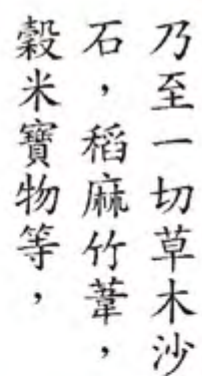 乃至一切草木沙
石，稻麻竹葦，
穀米寶物等，